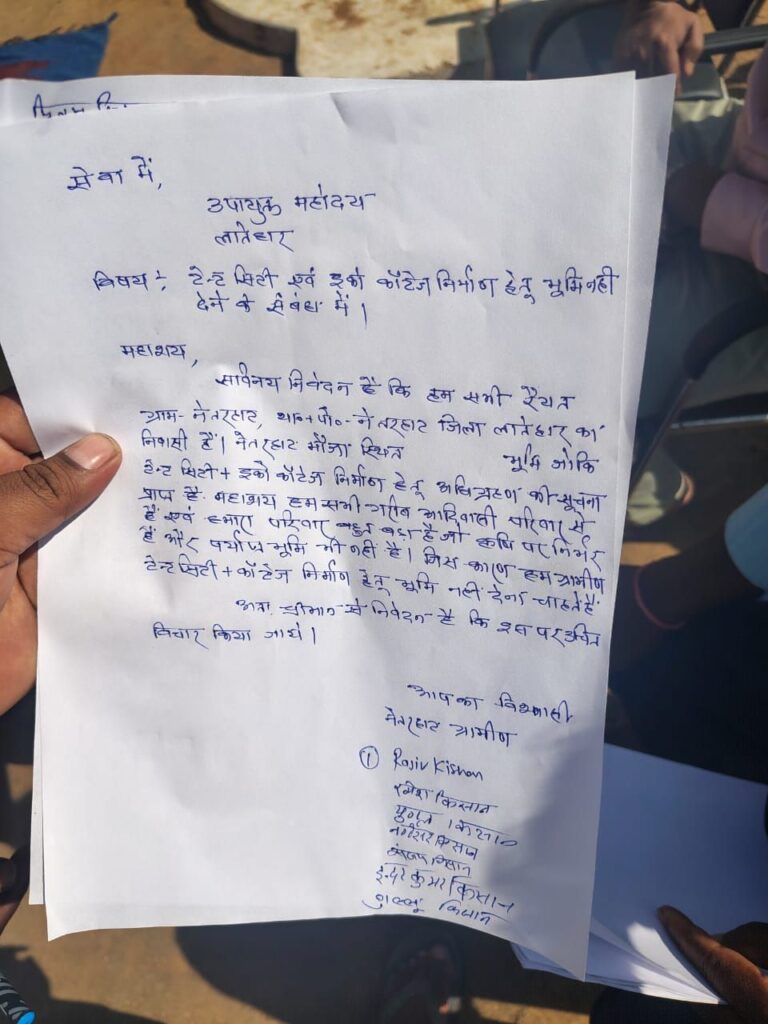 सेवा में,
उपायुक्त महोदय
लातेहार
विषय :- टेन्ट सिटी एवं इको कॉटेज निर्माण हेतू भूमि नही
देने के संबंध में।
महाशय,
सविनय निवेदन है कि हम सभी रैयत
ग्राम- नेतरहाट, थाना+पो०- नेतरहाट जिला लातेहार का
निवासी हैं। नेतरहाट मौजा स्थित भूमि जोकि
टेन्ट सिटी + इको कॉटेज निर्माण हेतू अधिग्रहण की सूचना
प्राप्त है महाशय हम सभी गरीब आदिवासी परिवार से
हैं एवं हमारा परिवार बहुत बड़ा है जो कृषि पर निर्भर
है और पर्याप्त भूमि भी नहीं है। जिस कारण हम ग्रामीण
टेन्ट सिटी + कॉटेज निर्माण हेतू भूमि नही देना चाहते हैं
अतः श्रीमान से निवेदन है कि इस पर उचित
विचार किया जाये।
आपका विश्वासी
नेतरहाट ग्रामीण
① Rajiv Kishan
रमेश किसान
किसान
नगेसर किसान
किसान
इन्दर कुमार किसान
किसान